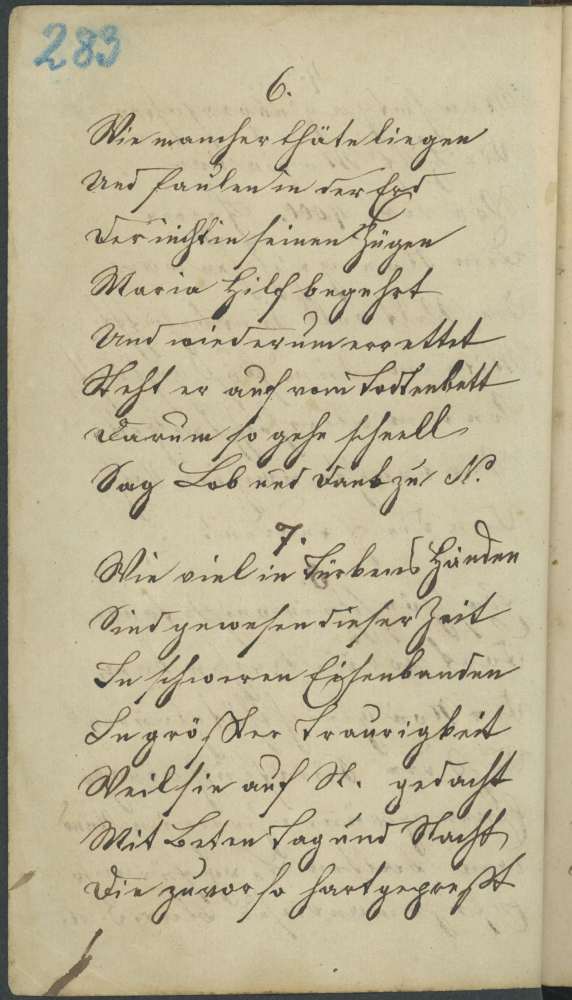 283
6.
Wie mancher thäte liegen
Und faulen in der Erd
Der nicht in seinen Zügen
Maria Hilf begehrt
Und wiederum errettet
Steht er auf vom Todtenbett
Darum so gehe schnell
Sag Lob und Dank zu N.
7.
Wie viel in Türkens Händen
Sind gewesen dieser Zeit
In schweren Eisenbanden
In größter Traurigkeit
Weil sie auf N. gedacht
Mit Beten Tag und Nacht
Die zuvor so hart gepreßt